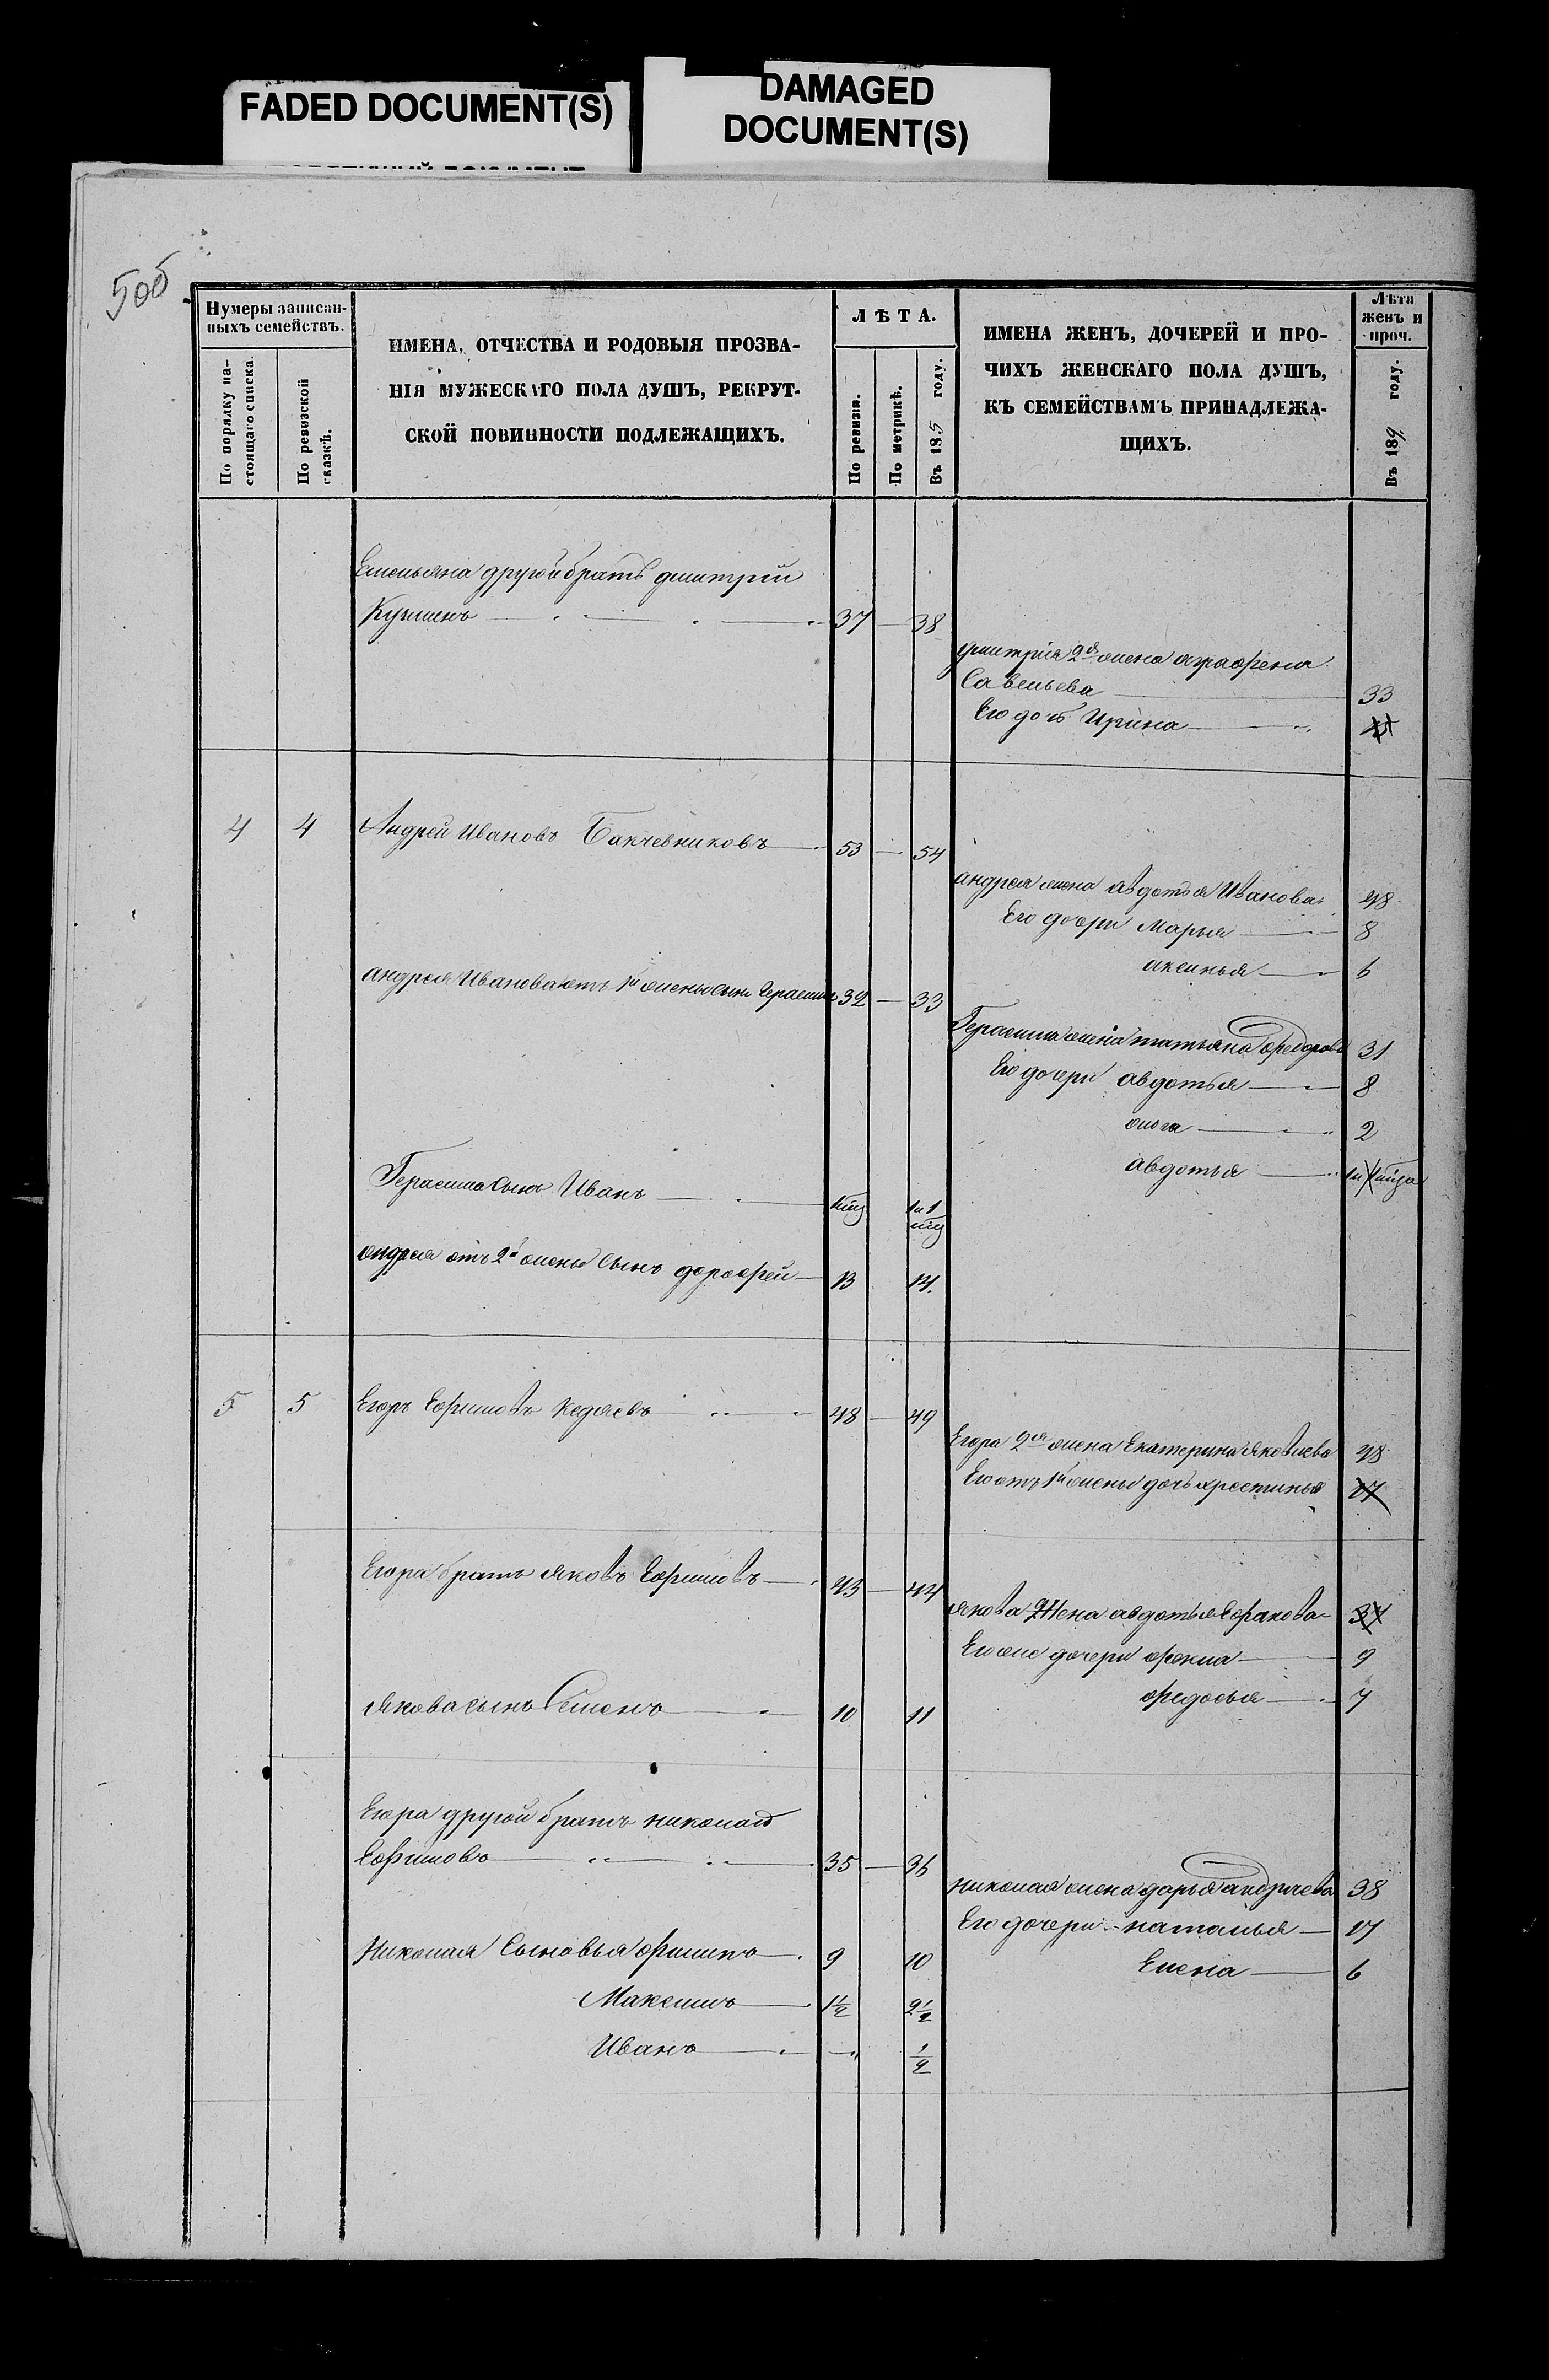 FADED DOCUMENT(S)
DAMAGED
DOCUMENT(S)
500
Нумеры записан-
ныхъ семействъ.
По порядку на-
стоящаго списка.
По ревизской
сказкѣ.
ИМЕНА, ОТЧЕСТВА И РОДОВЫЯ ПРОЗВА-
НІЯ МУЖЕСКАГО ПОЛА ДУШЪ, РЕКРУТ-
СКОЙ ПОВИННОСТИ ПОДЛЕЖАЩИХЪ.
ЛѢТА.
По ревизіи.
По метрикѣ.
Въ 185 году.
ИМЕНА ЖЕНЪ, ДОЧЕРЕЙ И ПРО-
ЧИХЪ ЖЕНСКАГО ПОЛА ДУШЪ,
КЪ СЕМЕЙСТВАМЪ ПРИНАДЛЕЖА-
ЩИХЪ.
Лѣта
женъ и
проч.
Въ 189 году.
Емельяна другой братъ дмитрій
37 — 38
дмитрія 2я жена аграфена
Савельева 33
Его дочь Ирина
4 4 Андрей Ивановъ Бакчевниковъ 53 — 54
андрея жена авдотья Иванова 48
Его дочери Марья 8
аксинья 6
андрея Иванова отъ 1й жены сынъ Герасимъ 32 — 33
Герасима жена татьяна федорова 31
Его дочери авдотья 8
ольга 2
авдотья
Герасима сынъ Иванъ
андрея отъ 2й жены сынъ дорофей 13 14.
5 5 Егоръ Ефимовъ Кедяевъ 48 — 49
Егора 2я жена Екатерина яковлева 48
Его отъ 1й жены дочь хрестинья 17
Егора братъ яковъ Ефимовъ 43 — 44
якова 2 жена авдотья
Его же дочери фекла 9
федосья 7
якова сынъ Семенъ 10 11
Егора другой братъ николай
Ефимовъ 35 — 36
николая жена дарья андреева 38
Его дочери наталья 17
Николая Сыновья филипъ 9 10
Елена 6
Максимъ 1½ 2½
Иванъ — ½